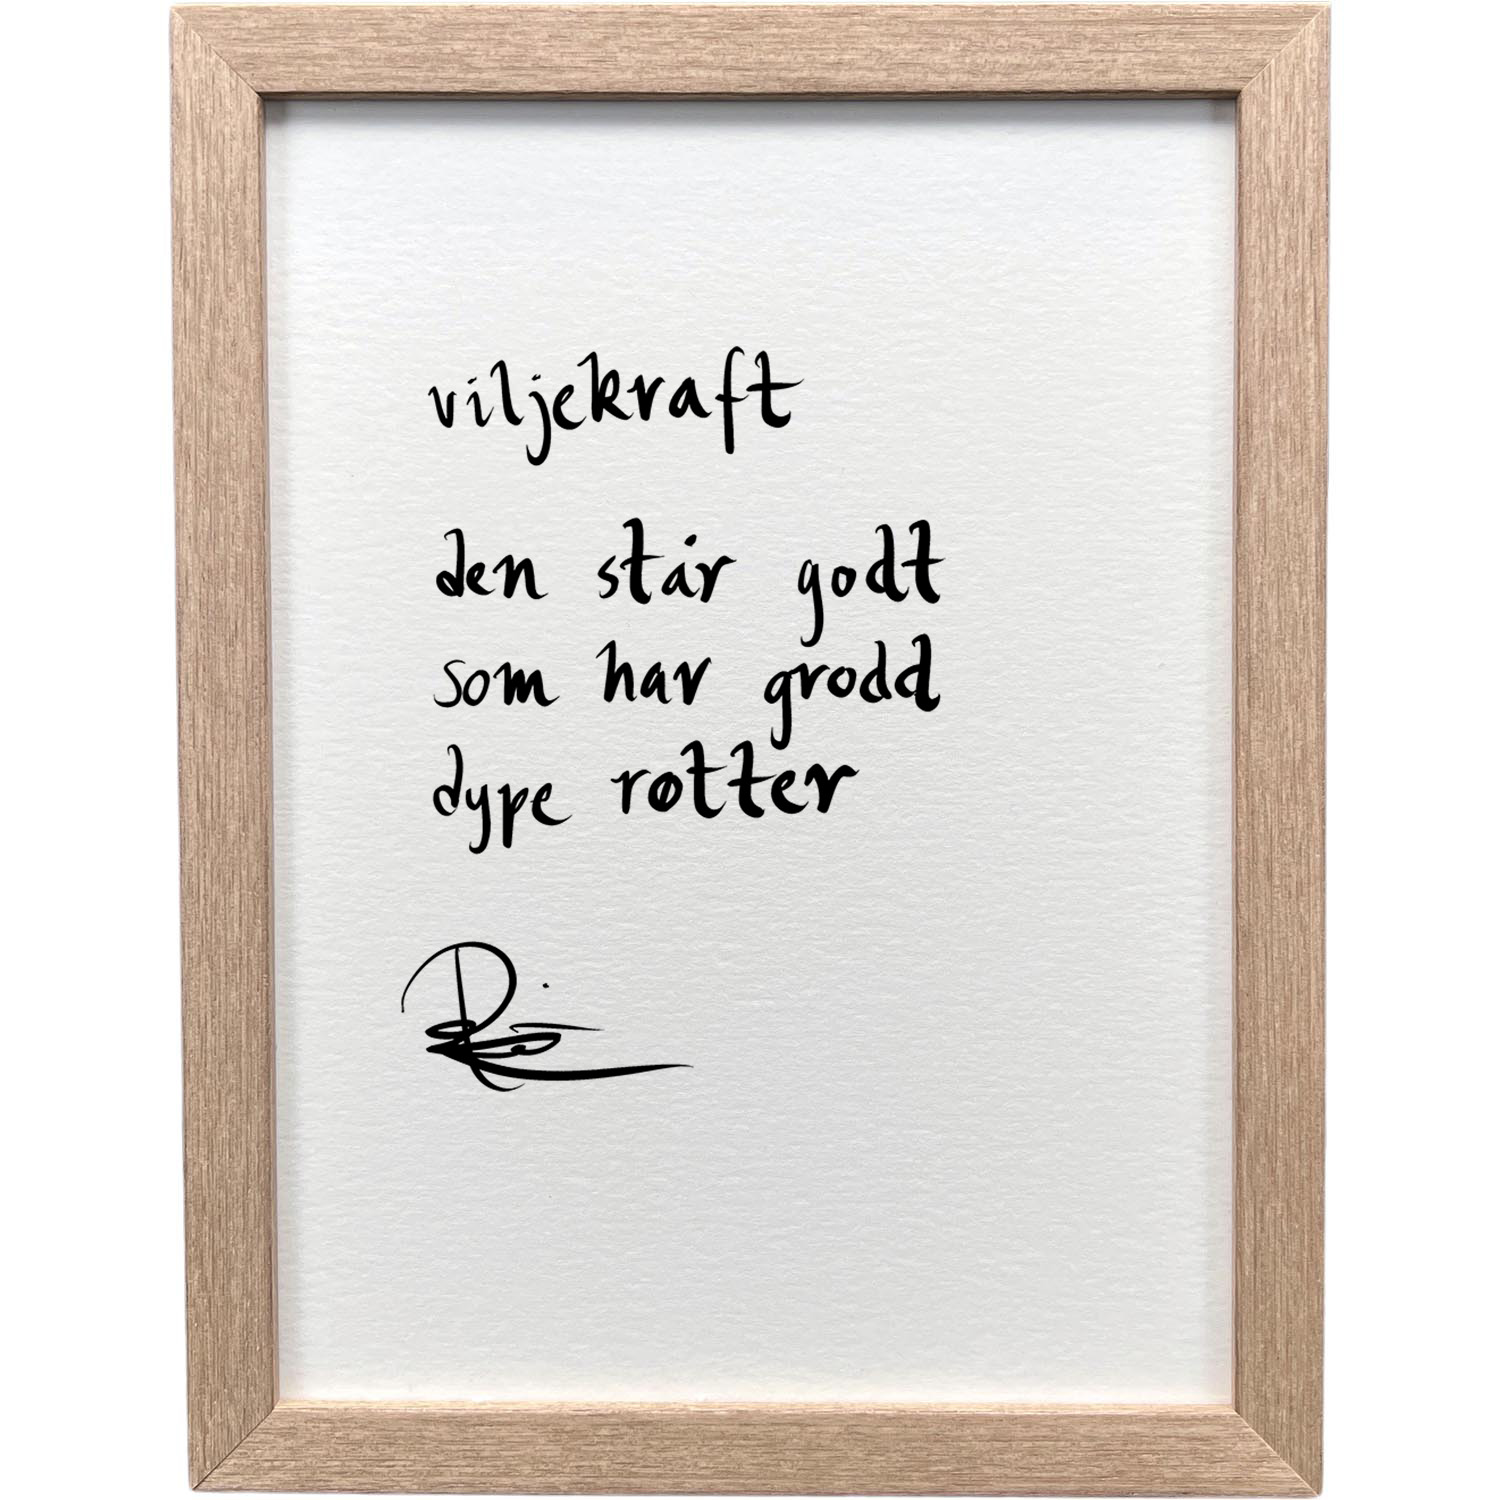 viljekraft
den står godt
som har grodd
dype røtter